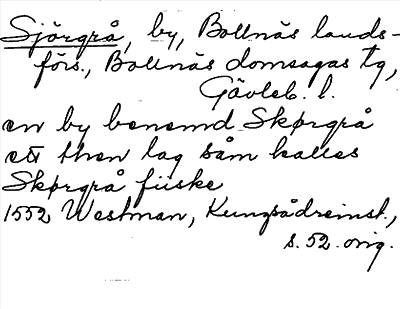 Sjörgrå, by, Bollnäs lands-
förs., Bollnäs domsagas tg,
Gävleb. l.
en by benemd Skørgrå
ett then lag såm kalles
Skørgrå fiiske
1552 Westman, Kungsådreinst.,
s. 52. orig.